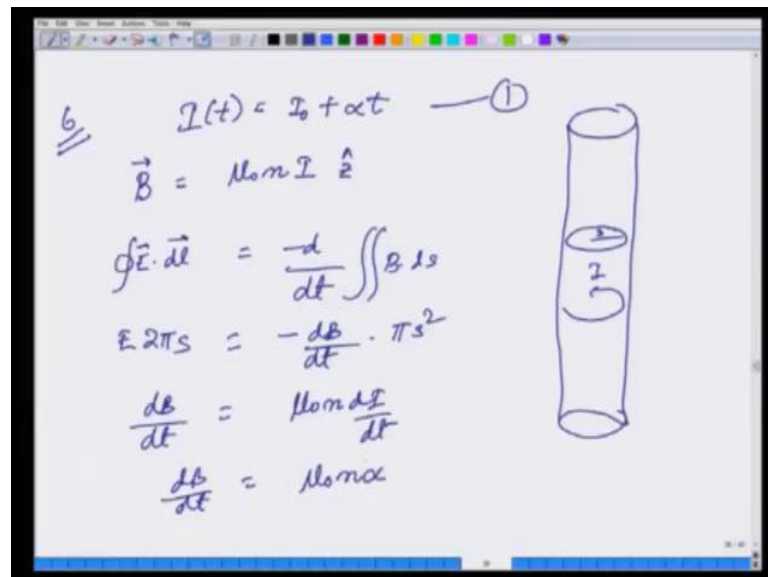 File Edit View Insert Actions Tools Help
6
I(t) = I₀ + αt —— ①
B⃗ = μ₀nI ẑ
∮E⃗.dl⃗ = -d/dt ∬B ds
E 2πs = - dB/dt . πs²
dB/dt = μ₀n dI/dt
dB/dt = μ₀nα
s
I